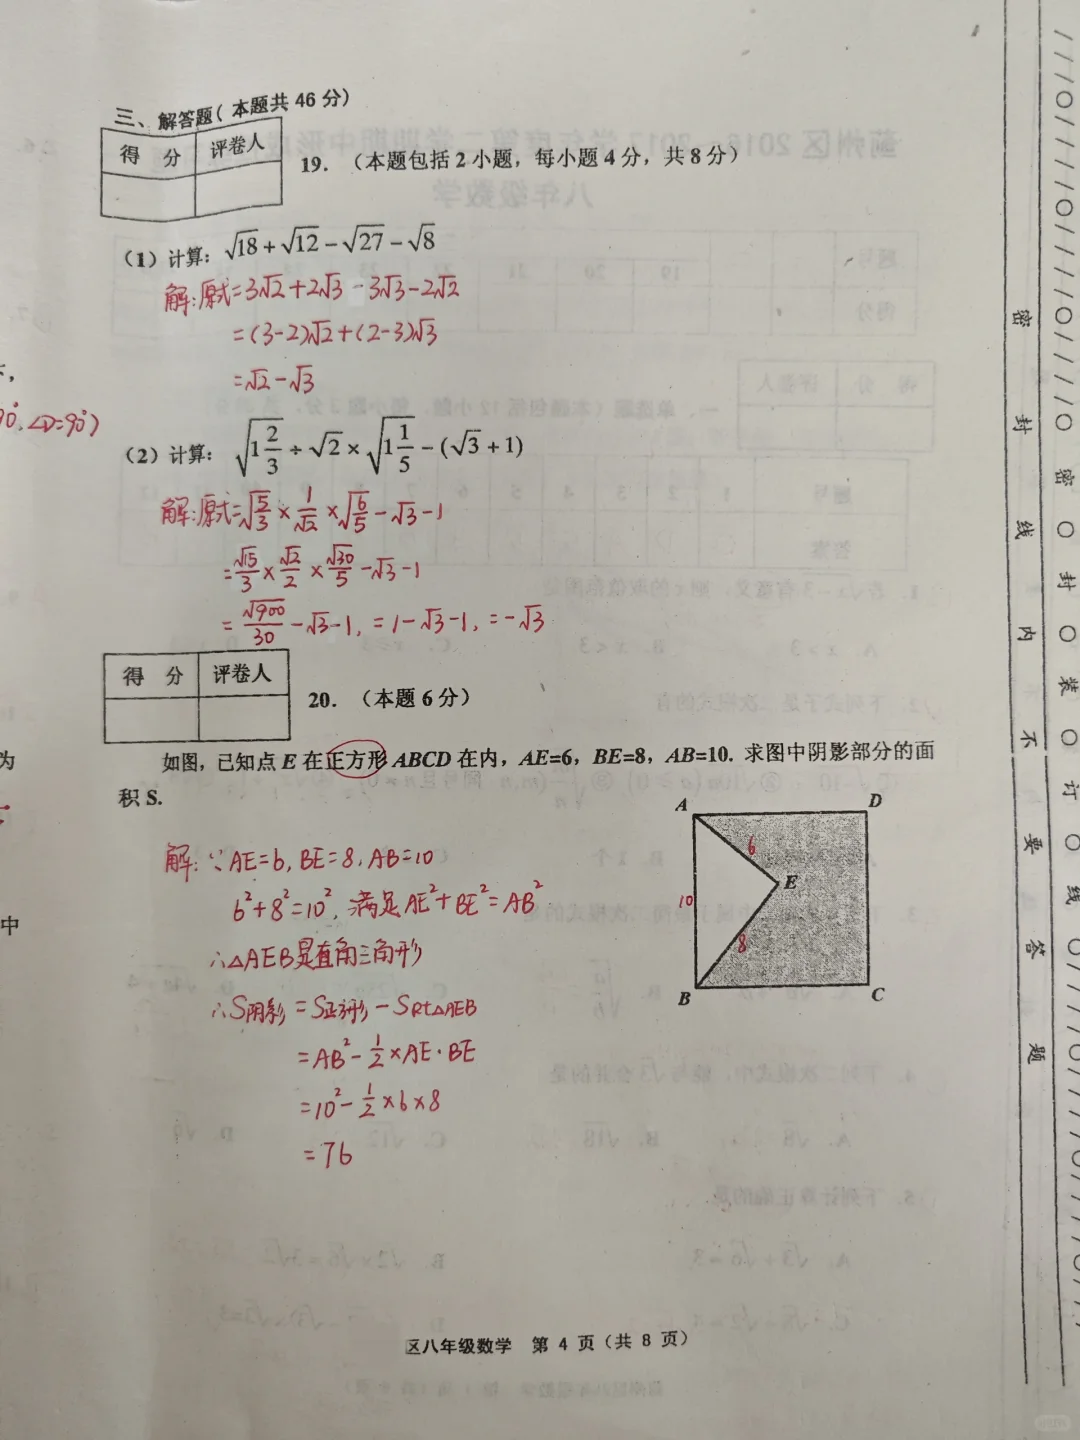 三、解答题(本题共 46 分)
得 分 评卷人
19. (本题包括 2 小题，每小题 4 分，共 8 分)
(1) 计算: √18 + √12 − √27 − √8
解:原式=3√2+2√3-3√3-2√2
=(3-2)√2+(2-3)√3
=√2-√3
90°,∠D=90°)
(2) 计算: √(1 2/3) ÷ √2 × √(1 1/5) − (√3 + 1)
解:原式=√(5/3)×1/√2×√(6/5)-√3-1
=√15/3×√2/2×√30/5-√3-1
=√900/30-√3-1,=1-√3-1,=-√3
得 分 评卷人
20. (本题 6 分)
为
如图，已知点 E 在正方形 ABCD 在内，AE=6，BE=8，AB=10. 求图中阴影部分的面
积 S.
A D
6
E
10
8
B C
解:∵AE=6,BE=8,AB=10
6²+8²=10²,满足AE²+BE²=AB²
中
∴△AEB是直角三角形
∴S阴影=S正方形-SRt△AEB
=AB²-1/2×AE·BE
=10²-1/2×6×8
=76
区八年级数学 第 4 页(共 8 页)
密 封 线 内 不 要 答 题
密 ○ 封 ○ 装 ○ 订 ○ 线